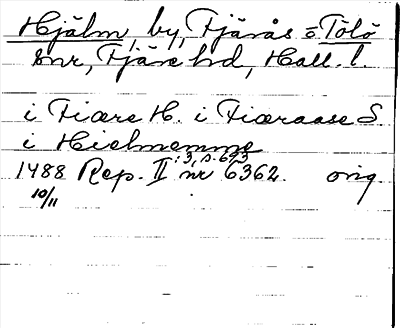 Hjälm, by, Fjärås o Tölö
snr, Fjäre hd, Hall. l.
i Fiære H. i Fiæraase S.
i Hielmemme
1488 Rep. II :3, s. 693 nr 6362. orig.
10/11